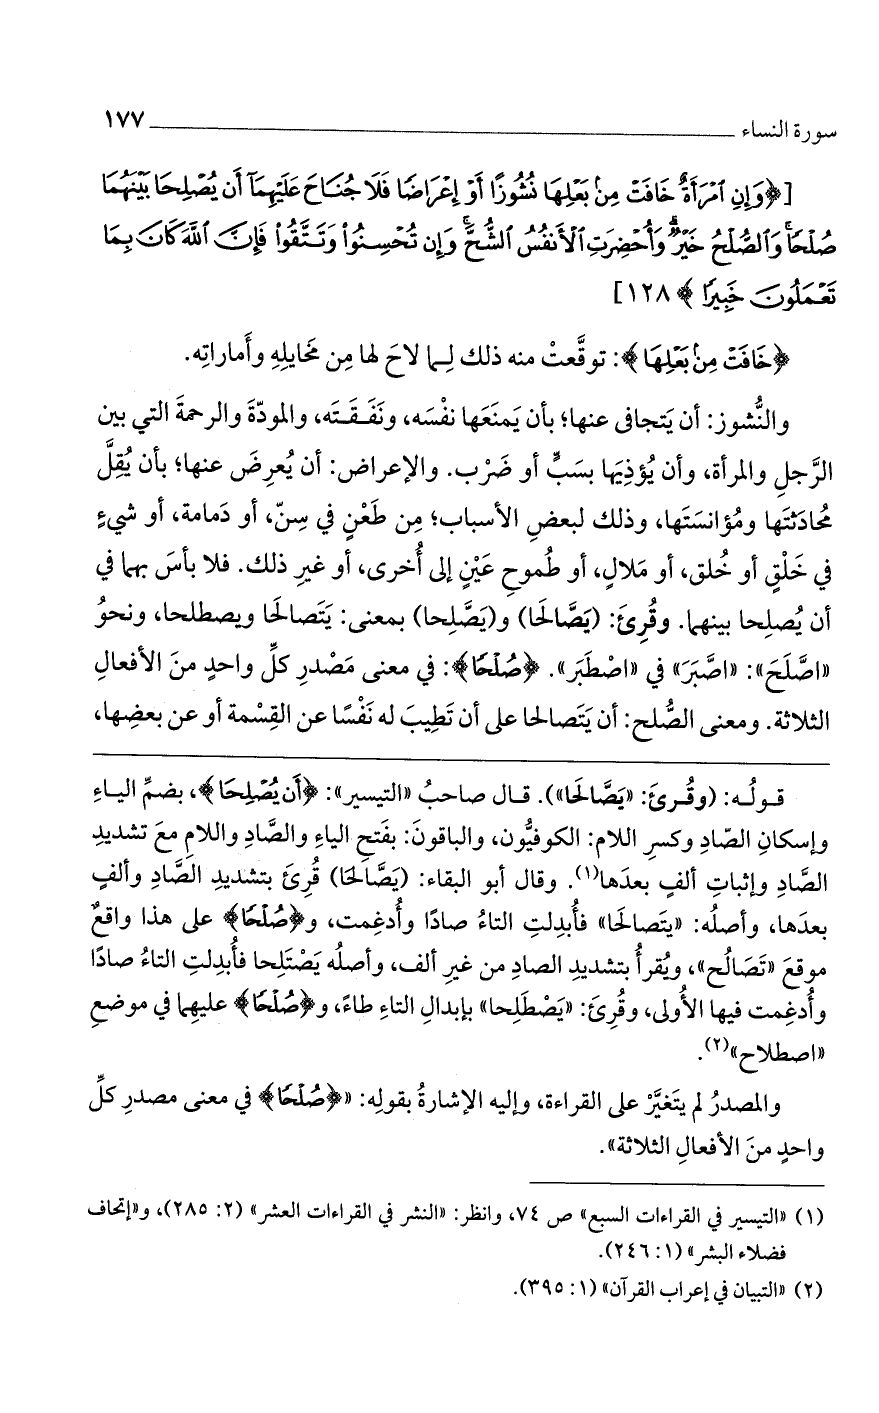 سورة النساء ١٧٧
[﴿وَإِنِ ٱمْرَأَةٌ خَافَتْ مِنۢ بَعْلِهَا نُشُوزًا أَوْ إِعْرَاضًا فَلَا جُنَاحَ عَلَيْهِمَآ أَن يُصْلِحَا بَيْنَهُمَا
صُلْحًا ۚ وَٱلصُّلْحُ خَيْرٌ ۗ وَأُحْضِرَتِ ٱلْأَنفُسُ ٱلشُّحَّ ۚ وَإِن تُحْسِنُوا۟ وَتَتَّقُوا۟ فَإِنَّ ٱللَّهَ كَانَ بِمَا
تَعْمَلُونَ خَبِيرًا﴾ ١٢٨]
﴿خَافَتْ مِنۢ بَعْلِهَا﴾: توقَّعتْ منه ذلك لِـما لاحَ لها مِن مَخايلِهِ وأَماراتِه.
والنُّشوز: أن يَتجافى عنها؛ بأن يَمنَعَها نفْسَه، ونَفَقَـتَه، والمودّةَ والرحمةَ التي بين
الرَّجلِ والمرأة، وأن يُؤذِيَها بسَبٍّ أو ضَرْب. والإعراض: أن يُعرِضَ عنها؛ بأن يُقِلَّ
مُحادَثتَها ومُؤانسَتَها، وذلك لبعضِ الأسباب؛ مِن طَعْنٍ في سِنّ، أو دَمامة، أو شيءٍ
في خَلْقٍ أو خُلق، أو مَلالٍ، أو طُموحِ عَيْنٍ إلى أُخرى، أو غيرِ ذلك. فلا بأسَ بهما في
أن يُصلِحا بينهما. وقُرِئَ: (يَصَّالَحَا) و(يَصَّلِحا) بمعنى: يَتَصالحَا ويصطلحا، ونحوُ
«اصَّلَحَ»: «اصَّبَرَ» في «اصْطَبَر». ﴿صُلْحًا﴾: في معنى مَصْدرِ كلِّ واحدٍ منَ الأفعالِ
الثلاثة. ومعنى الصُّلح: أن يَتَصالحا على أن تَطِيبَ له نَفْسًا عن القِسْمة أو عن بعضِها،
قولُـه: (وقُـرئَ: «يَصَّالَحَا»). قـال صاحبُ «التيسير»: ﴿أَن يُصْلِحَا﴾، بضمِّ اليـاءِ
وإسكانِ الصّادِ وكسرِ اللام: الكوفيُّون، والباقونَ: بفَتحِ الياءِ والصَّادِ واللامِ معَ تشديدِ
الصَّادِ وإثباتِ ألفٍ بعدَها(١). وقال أبو البقاء: (يَصَّالَحَا) قُرِئَ بتشديدِ الصَّادِ وألفٍ
بعدَها، وأصلُه: «يتَصالحَا» فأُبدلتِ التاءُ صادًا وأُدغِمت، و﴿صُلْحًا﴾ على هذا واقعٌ
موقعَ «تَصَالُح»، ويُقرأُ بتشديدِ الصادِ من غيرِ ألف، وأصلُه يَصْتَلِحا فأُبدلتِ التاءُ صادًا
وأُدغِمت فيها الأُولى، وقُرِئَ: «يَصْطَلِحا» بإبدالِ التاءِ طاءً، و﴿صُلْحًا﴾ عليهِما في موضعِ
«اصطلاح»(٢).
والمصدرُ لم يتَغيَّرْ على القراءة، وإليه الإشارةُ بقولِه: «﴿صُلْحًا﴾ في معنى مصدرِ كلِّ
واحدٍ منَ الأفعالِ الثلاثة».
(١) «التيسير في القراءات السبع» ص ٧٤، وانظر: «النشر في القراءات العشر» (٢: ٢٨٥)، و«إتحاف
فضلاء البشر» (١: ٢٤٦).
(٢) «التبيان في إعراب القرآن» (١: ٣٩٥).